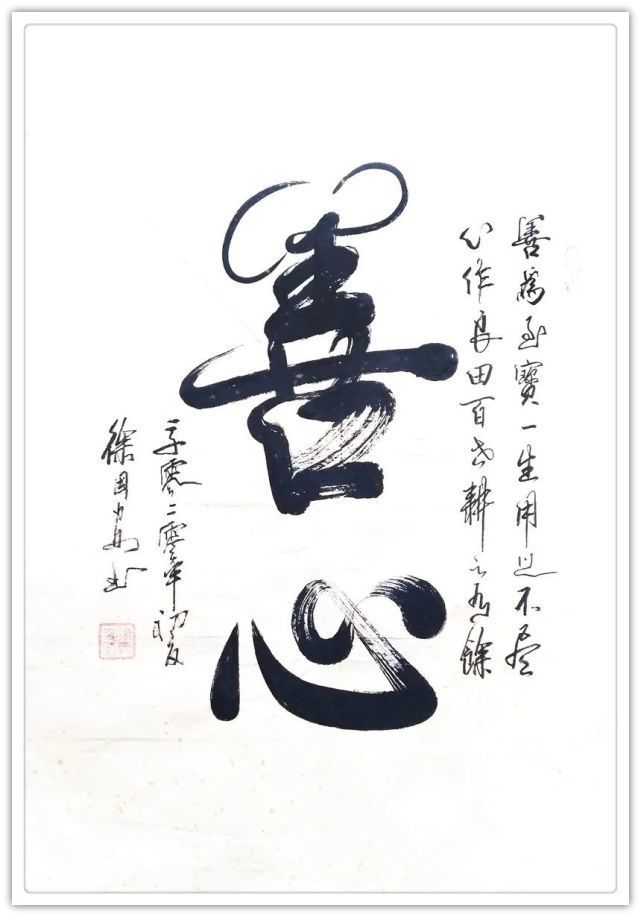 善為至寶一生用之不盡
心作良田百世耕之有餘
善心
二零二零年初夏
徐国书